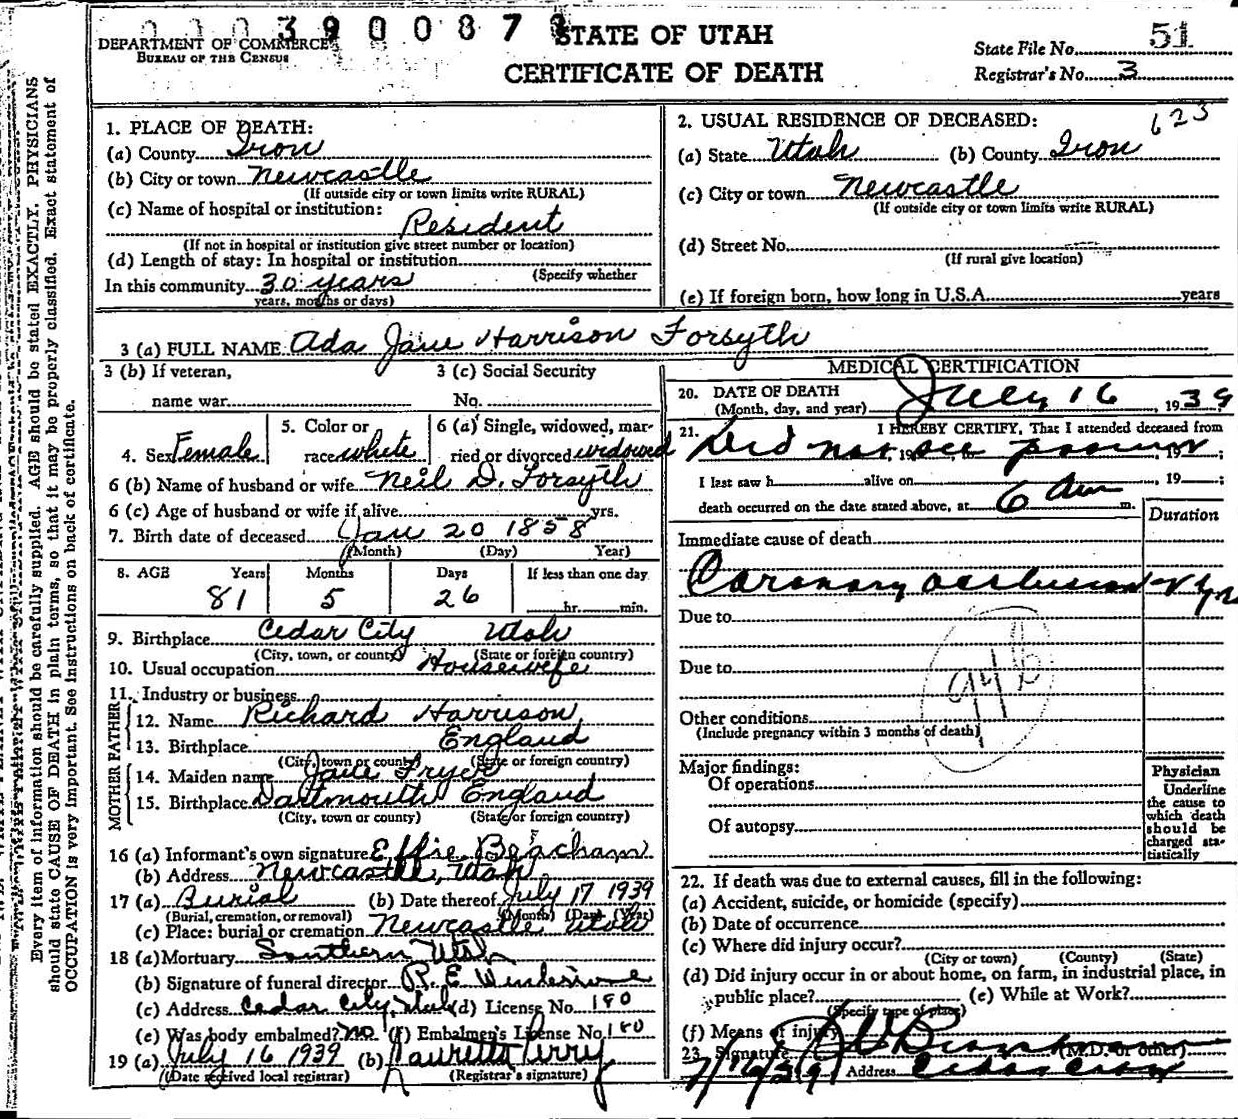 3900878
DEPARTMENT OF COMMERCE
BUREAU OF THE CENSUS
STATE OF UTAH
CERTIFICATE OF DEATH
State File No. 51
Registrar's No. 3
Every item of information should be carefully supplied. AGE should be stated EXACTLY. PHYSICIANS
should state CAUSE OF DEATH in plain terms, so that it may be properly classified. Exact statement of
OCCUPATION is very important. See instructions on back of certificate.
1. PLACE OF DEATH:
(a) County Iron
(b) City or town Newcastle
(If outside city or town limits write RURAL)
(c) Name of hospital or institution:
Resident
(If not in hospital or institution give street number or location)
(d) Length of stay: In hospital or institution
(Specify whether
In this community 30 years
years, months or days)
2. USUAL RESIDENCE OF DECEASED: 623
(a) State Utah (b) County Iron
(c) City or town Newcastle
(If outside city or town limits write RURAL)
(d) Street No.
(If rural give location)
(e) If foreign born, how long in U.S.A. years
3 (a) FULL NAME Ada Jane Harrison Forsyth
3 (b) If veteran, name war
3 (c) Social Security No.
4. Sex Female
5. Color or race white
6 (a) Single, widowed, married or divorced widowed
6 (b) Name of husband or wife Neil D. Forsyth
6 (c) Age of husband or wife if alive yrs.
7. Birth date of deceased Jan 20 1858
(Month) (Day) Year)
8. AGE Years Months Days If less than one day
81 5 26 hr. min.
9. Birthplace Cedar City Utah
(City, town, or county) (State or foreign country)
10. Usual occupation Housewife
11. Industry or business
FATHER
12. Name Richard Harrison
13. Birthplace England
(City, town or county) (State or foreign country)
MOTHER
14. Maiden name Jane Fryer
15. Birthplace Dartmouth England
(City, town or county) (State or foreign country)
16 (a) Informant's own signature Effie Beacham
(b) Address Newcastle, Utah
17 (a) Burial (b) Date thereof July 17 1939
(Burial, cremation, or removal) (Month) (Day) (Year)
(c) Place: burial or cremation Newcastle Utah
18 (a) Mortuary Southern Utah
(b) Signature of funeral director R. E.
(c) Address Cedar City, Utah (d) License No. 180
(e) Was body embalmed? no (f) Embalmer's License No. 180
19 (a) July 16 1939 (b) Lauretta Perry
(Date received local registrar) (Registrar's signature)
MEDICAL CERTIFICATION
20. DATE OF DEATH
(Month, day, and year) July 16, 1939
21. I HEREBY CERTIFY, That I attended deceased from
Did not see
, 19 , 19 ;
I last saw h alive on , 19 ;
death occurred on the date stated above, at 6 am m.
Duration
Immediate cause of death
Coronary occlusion
Due to
Due to
94b
Other conditions
(Include pregnancy within 3 months of death)
Major findings:
Of operations
Of autopsy
Physician
Underline
the cause to
which death
should be
charged sta-
tistically
22. If death was due to external causes, fill in the following:
(a) Accident, suicide, or homicide (specify)
(b) Date of occurrence
(c) Where did injury occur?
(City or town) (County) (State)
(d) Did injury occur in or about home, on farm, in industrial place, in
public place? (e) While at Work?
(Specify type of place)
(f) Means of injury
23. Signature (M.D. or other)
7/16/39 Address Cedar City